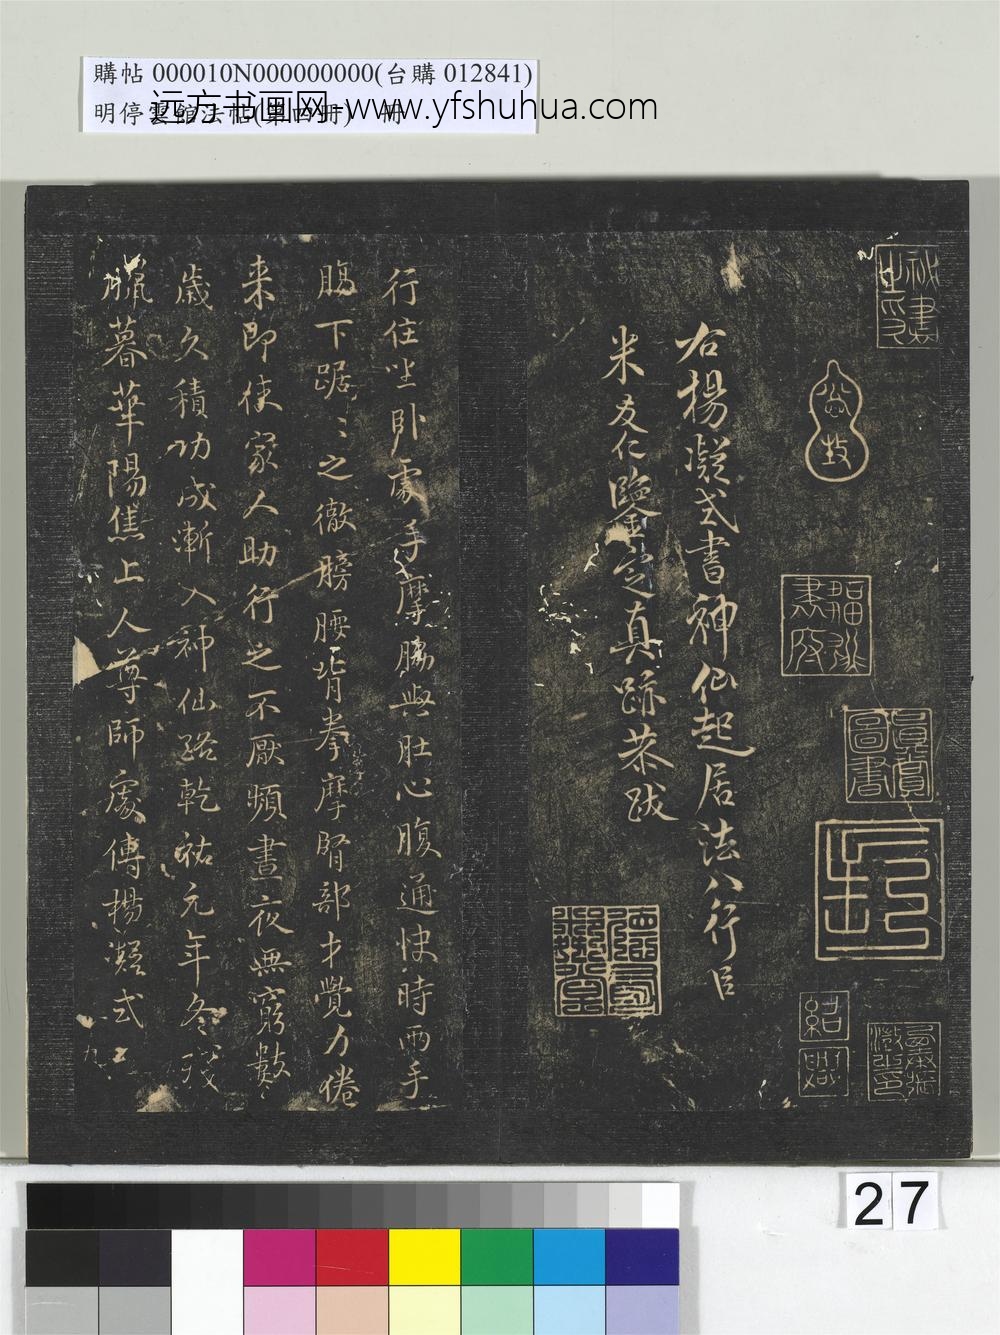 購帖 000010N000000000(台購 012841)
明停雲館法帖(第四冊) 冊
远方书画网-www.yfshuhua.com
右楊凝式書神仙起居法八行臣
米友仁鑒定真跡恭跋
行住坐卧處手摩脇與肚心腹通快時兩手
腸下踞〻之徹膀腰背拳摩腎部才覺力倦
来即使家人助行之不厭頻晝夜無窮數
歲久積功成漸入神仙路乾祐元年冬殘
臘暮華陽焦上人尊師處傳楊凝式
27